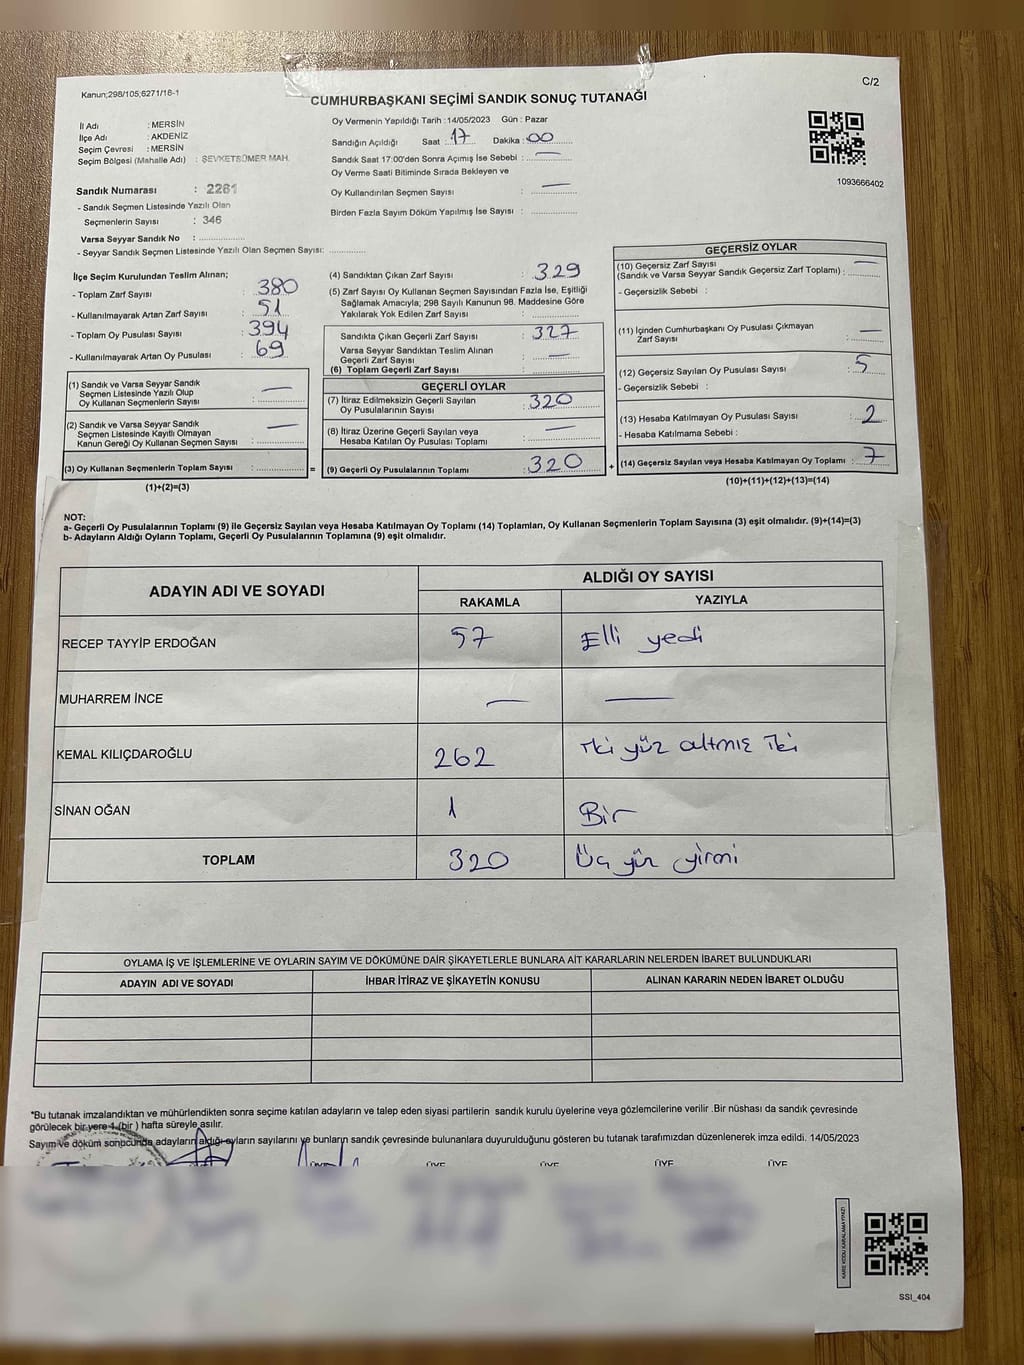 C/2
Kanun;298/105,6271/16-1
CUMHURBAŞKANI SEÇİMİ SANDIK SONUÇ TUTANAĞI
İl Adı : MERSİN
İlçe Adı : AKDENİZ
Seçim Çevresi : MERSİN
Seçim Bölgesi (Mahalle Adı) : ŞEVKETSÜMER MAH.
Sandık Numarası : 2261
- Sandık Seçmen Listesinde Yazılı Olan
Seçmenlerin Sayısı : 346
Varsa Seyyar Sandık No :
- Seyyar Sandık Seçmen Listesinde Yazılı Olan Seçmen Sayısı:
Oy Vermenin Yapıldığı Tarih :14/05/2023 Gün : Pazar
Sandığın Açıldığı Saat : 17 Dakika : 00
Sandık Saat 17:00'den Sonra Açımış İse Sebebi : —
Oy Verme Saati Bitiminde Sırada Bekleyen ve
Oy Kullandırılan Seçmen Sayısı : —
Birden Fazla Sayım Döküm Yapılmış İse Sayısı :
1093666402
İlçe Seçim Kurulundan Teslim Alınan;
- Toplam Zarf Sayısı : 380
- Kullanılmayarak Artan Zarf Sayısı : 51
- Toplam Oy Pusulası Sayısı : 394
- Kullanılmayarak Artan Oy Pusulası : 69
(1) Sandık ve Varsa Seyyar Sandık
Seçmen Listesinde Yazılı Olup
Oy Kullanan Seçmenlerin Sayısı : —
(2) Sandık ve Varsa Seyyar Sandık
Seçmen Listesinde Kayıtlı Olmayan
Kanun Gereği Oy Kullanan Seçmen Sayısı : —
(3) Oy Kullanan Seçmenlerin Toplam Sayısı :
(1)+(2)=(3)
(4) Sandıktan Çıkan Zarf Sayısı : 329
(5) Zarf Sayısı Oy Kullanan Seçmen Sayısından Fazla İse, Eşitliği
Sağlamak Amacıyla, 298 Sayılı Kanunun 98. Maddesine Göre
Yakılarak Yok Edilen Zarf Sayısı :
Sandıkta Çıkan Geçerli Zarf Sayısı : 327
Varsa Seyyar Sandıktan Teslim Alınan
Geçerli Zarf Sayısı : —
(6) Toplam Geçerli Zarf Sayısı :
GEÇERLİ OYLAR
(7) İtiraz Edilmeksizin Geçerli Sayılan
Oy Pusulalarının Sayısı : 320
(8) İtiraz Üzerine Geçerli Sayılan veya
Hesaba Katılan Oy Pusulası Toplamı : —
= (9) Geçerli Oy Pusulalarının Toplamı : 320
GEÇERSİZ OYLAR
(10) Geçersiz Zarf Sayısı
(Sandık ve Varsa Seyyar Sandık Geçersiz Zarf Toplamı) : —
- Geçersizlik Sebebi :
(11) İçinden Cumhurbaşkanı Oy Pusulası Çıkmayan
Zarf Sayısı : —
(12) Geçersiz Sayılan Oy Pusulası Sayısı : 5
- Geçersizlik Sebebi :
(13) Hesaba Katılmayan Oy Pusulası Sayısı : 2
- Hesaba Katılmama Sebebi :
+ (14) Geçersiz Sayılan veya Hesaba Katılmayan Oy Toplamı : 7
(10)+(11)+(12)+(13)=(14)
NOT:
a- Geçerli Oy Pusulalarının Toplamı (9) ile Geçersiz Sayılan veya Hesaba Katılmayan Oy Toplamı (14) Toplamları, Oy Kullanan Seçmenlerin Toplam Sayısına (3) eşit olmalıdır. (9)+(14)=(3)
b- Adayların Aldığı Oyların Toplamı, Geçerli Oy Pusulalarının Toplamına (9) eşit olmalıdır.
ADAYIN ADI VE SOYADI ALDIĞI OY SAYISI
RAKAMLA YAZIYLA
RECEP TAYYİP ERDOĞAN 57 Elli yedi
MUHARREM İNCE — —
KEMAL KILIÇDAROĞLU 262 iki yüz altmış iki
SİNAN OĞAN 1 Bir
TOPLAM 320 Üç yüz yirmi
OYLAMA İŞ VE İŞLEMLERİNE VE OYLARIN SAYIM VE DÖKÜMÜNE DAİR ŞİKAYETLERLE BUNLARA AİT KARARLARIN NELERDEN İBARET BULUNDUKLARI
ADAYIN ADI VE SOYADI İHBAR İTİRAZ VE ŞİKAYETİN KONUSU ALINAN KARARIN NEDEN İBARET OLDUĞU
*Bu tutanak imzalandıktan ve mühürlendikten sonra seçime katılan adayların ve talep eden siyasi partilerin sandık kurulu üyelerine veya gözlemcilerine verilir .Bir nüshası da sandık çevresinde
görülecek bir yere 1 (bir ) hafta süreyle asılır.
Sayım ve döküm sonucunda adayların aldığı oyların sayılarını ve bunların sandık çevresinde bulunanlara duyurulduğunu gösteren bu tutanak tarafımızdan düzenlenerek imza edildi. 14/05/2023
ÜYE ÜYE ÜYE ÜYE
KARE KODU KARALAMAYINIZ!
SSI_404